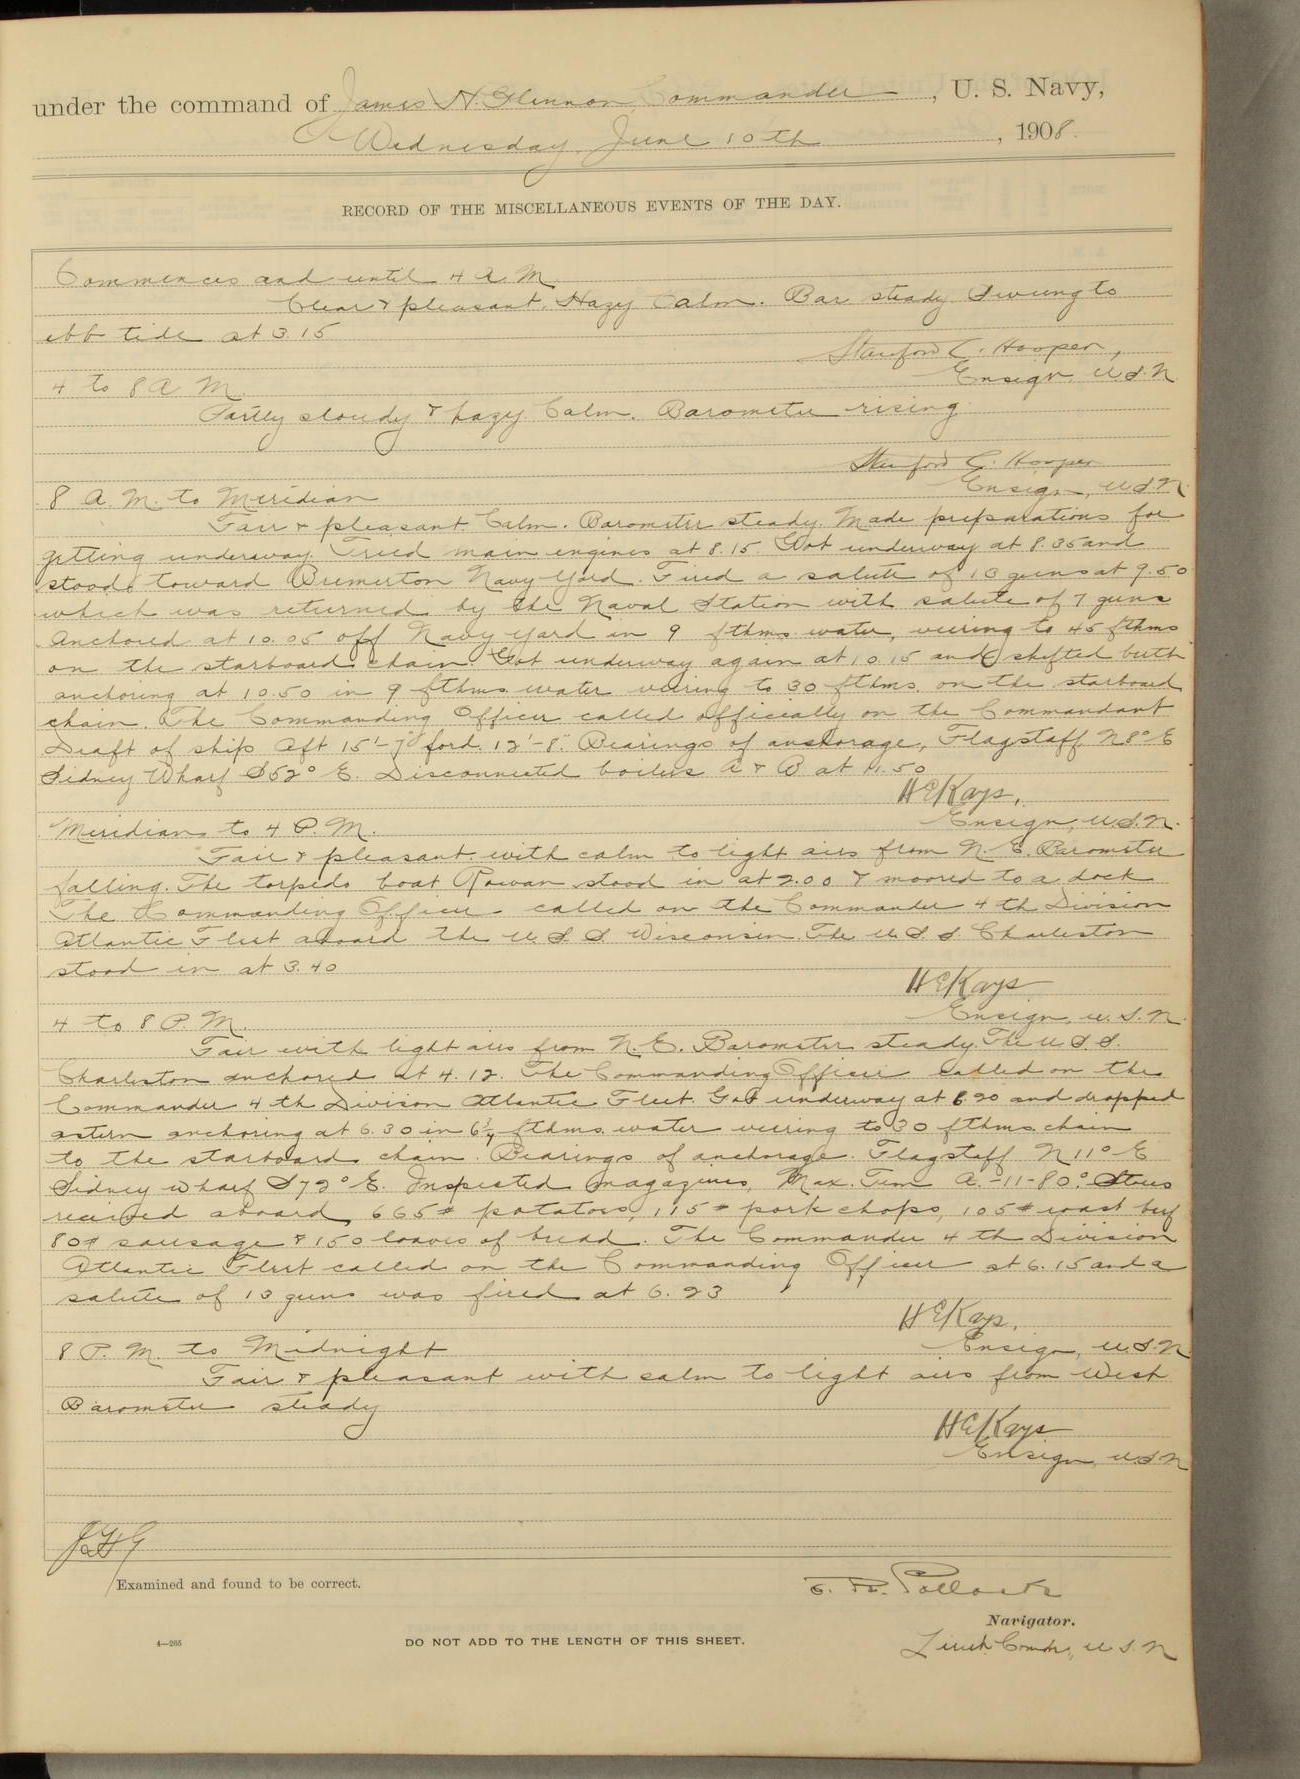 under the command of James H. Glennon Commander, U. S. Navy,
Wednesday, June 10th, 1908.
RECORD OF THE MISCELLANEOUS EVENTS OF THE DAY.
Commences and until 4 A. M.
Clear & pleasant. Hazy Calm. Bar steady Swung to
ebb tide at 3.15
Stanford C. Hooper,
Ensign, U.S.N
4 to 8 A M
Partly cloudy & hazy. Calm. Barometer rising.
Stanford C. Hooper
Ensign, U.S.N.
8 A. M. to Meridian
Fair & pleasant. Calm. Barometer steady. Made preparations for
getting underway. Tried main engines at 8.15. Got underway at 8.35 and
stood toward Bremerton Navy Yard. Fired a salute of 13 guns at 9.50
which was returned by the Naval Station with salute of 7 guns
Anchored at 10.05 off Navy Yard in 9 fthms water, veering to 45 fthms
on the starboard chain. Got underway again at 10.15 and shifted berth
anchoring at 10.50 in 9 fthms water veering to 30 fthms. on the starboard
chain. The Commanding Officer called officially on the Commandant
Draft of ship Aft 15'-7" ford. 12'-8". Bearings of anchorage, Flagstaff N8°E
Sidney Wharf S52° E. Disconnected boilers A & B at 11.50
H E Kays,
Ensign, U.S.N.
Meridian to 4 P. M.
Fair & pleasant with calm to light airs from N. E. Barometer
falling. The torpedo boat Rowan stood in at 2.00 & moored to a dock
The Commanding Officer called on the Commander 4 th Division
Atlantic Fleet aboard the U. S. S. Wisconsin. The U. S. S. Charleston
stood in at 3.40
H E Kays
Ensign, U. S. N.
4 to 8 P. M.
Fair with light airs from N. E. Barometer steady. The U S S.
Charleston anchored at 4.12. The Commanding Officer called on the
Commander 4 th Divison Atlantic Fleet. Got underway at 6 20 and dropped
astern anchoring at 6.30 in 6 fthms. water veering to 30 fthms. chain
to the starboard chain. Bearings of anchorage. Flagstaff N 11° E
Sidney Wharf S72° E. Inspected magazines, Max. Tem A.-11-80°. Stores
received aboard, 665# potatoes, 115# pork chops, 105# roast beef
80# sausage & 150 loaves of bread. The Commander 4 th Division
Atlantic Fleet called on the Commanding Officer at 6.15 and a
salute of 13 guns was fired at 6.23
H E Kays.
Ensign, U.S.N
8 P. M. to Midnight
Fair & pleasant with calm to light airs from West
Barometer steady
H E Kays
Ensign, U.S.N
Examined and found to be correct.
E. R. Pollock
Navigator.
Lieut. Comdr., U S. N
4—265
DO NOT ADD TO THE LENGTH OF THIS SHEET.